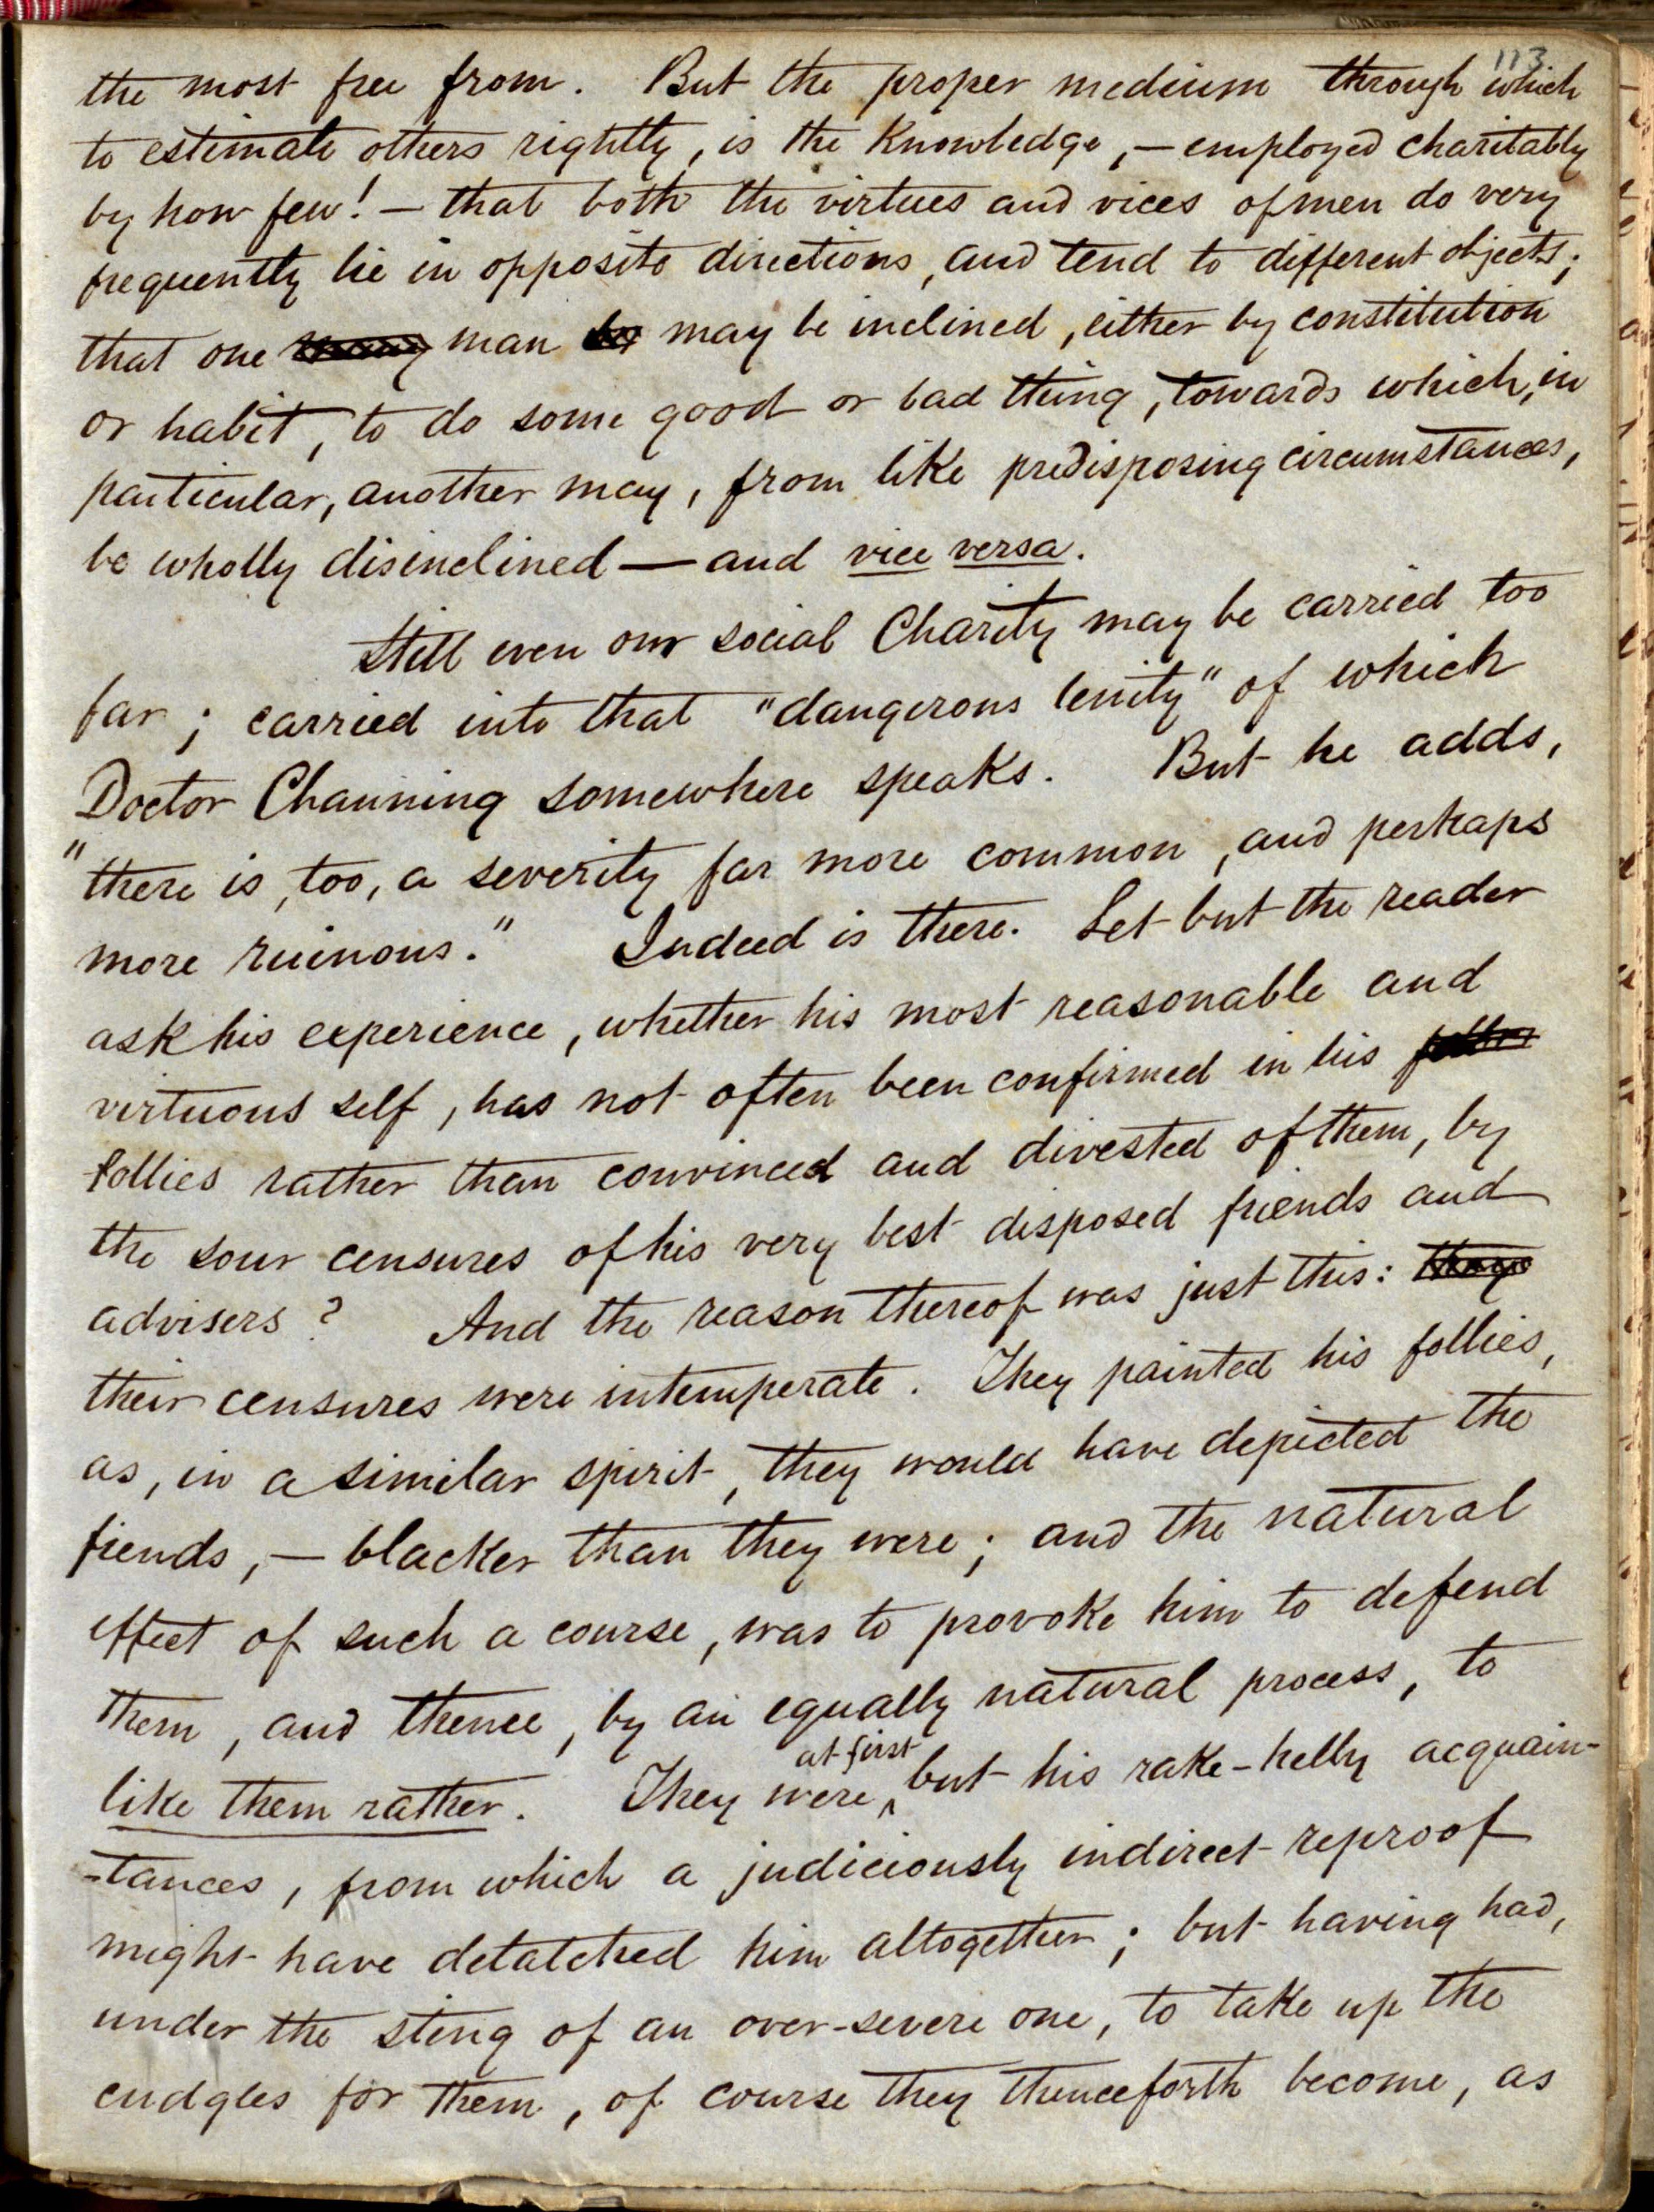 113
the most free from. But the proper medium through which
to estimate others rightly, is the Knowledge,—employed charitably
by how few!—that both the virtues and vices of men do very
frequently lie in opposite directions, and tend to different objects;
that one man may be inclined, either by constitution
or habit, to do some good or bad thing, towards which, in
particular, another may, from like predisposing circumstances,
be wholly disinclined—and vice versa.
Still even our social Charity may be carried too
far; carried into that "dangerous lenity" of which
Doctor Channing somewhere speaks. But he adds,
"there is, too, a severity far more common, and perhaps
more ruinous." Indeed is there. Let but the reader
ask his experience, whether his most reasonable and
virtuous self, has not often been confirmed in his
follies rather than convinced and divested of them, by
the sour censures of his very best disposed friends and
advisers? And the reason thereof was just this:
their censures were intemperate. They painted his follies,
as, in a similar spirit, they would have depicted the
fiends,—blacker than they were; and the natural
effect of such a course, was to provoke him to defend
them, and thence, by an equally natural process, to
at first
like them rather. They were ‸ but his rake-helly acquain-
-tances, from which a judiciously indirect reproof
might have detatched him altogether; but having had,
under the sting of an over-severe one, to take up the
cudgles for them, of course they thenceforth become, as